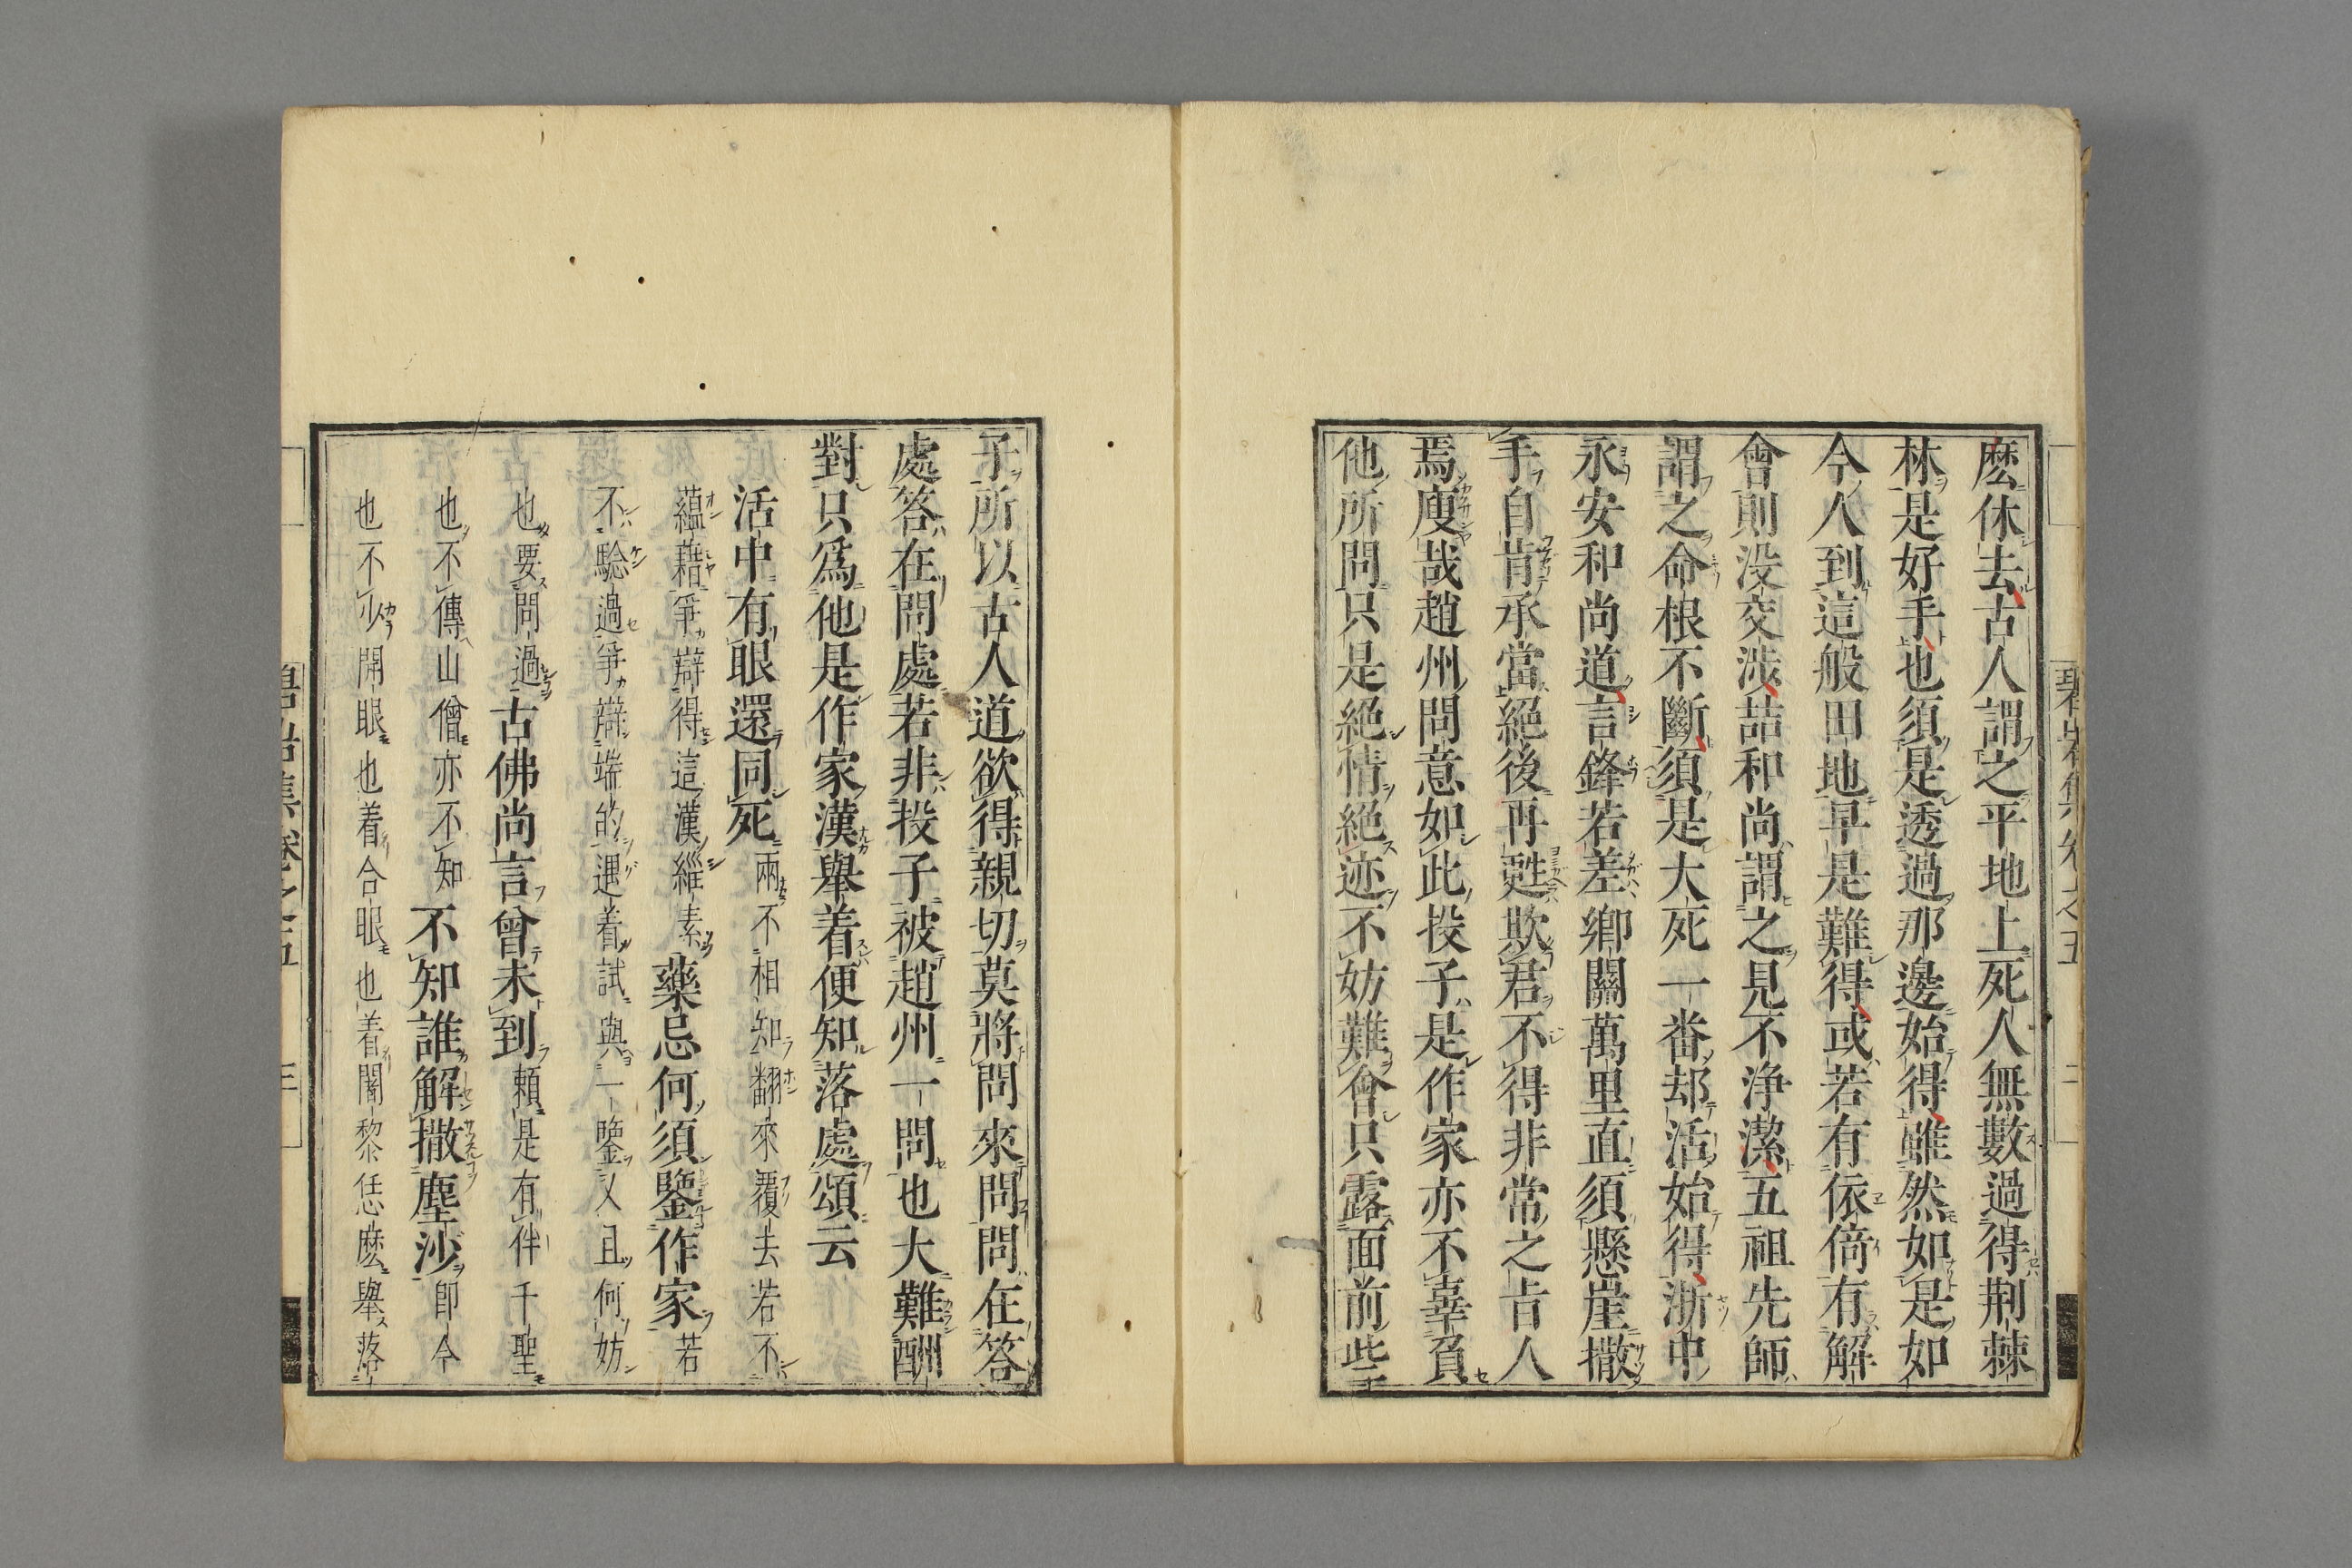 麽休去古人謂之平地上死人無數過得荆棘
林是好手也須是透過那邊始得雖然如是如
今人到這般田地早是難得或若有依倚有解
會則没交渉喆和尚謂之見不浄潔五祖先師
謂之命根不斷須是大死一番却活始得浙中
永安和尚道言鋒若差鄉關萬里直須懸崖撒
手自肯承當絕後再甦欺君不得非常之旨人
焉廋哉趙州問意如此投子是作家亦不辜負
他所問只是絕情絕迹不妨難會只露面前些
子所以古人道欲得親切莫將問來問問在答
處答在問處若非投子被趙州一問也大難酬
對只爲他是作家漢舉着便知落處頌云
活中有眼還同死兩不相知翻來覆去若不
蘊藉爭辯得這漢緇素藥忌何須鑒作家若
不驗過爭辯端的遇着試與一鑒又且何妨
也要問過古佛尚言曾未到賴是有伴千聖
也不傳山僧亦不知不知誰解撒塵沙即今
也不少開眼也着合眼也着闍黎恁麽舉落
碧岩集卷之五